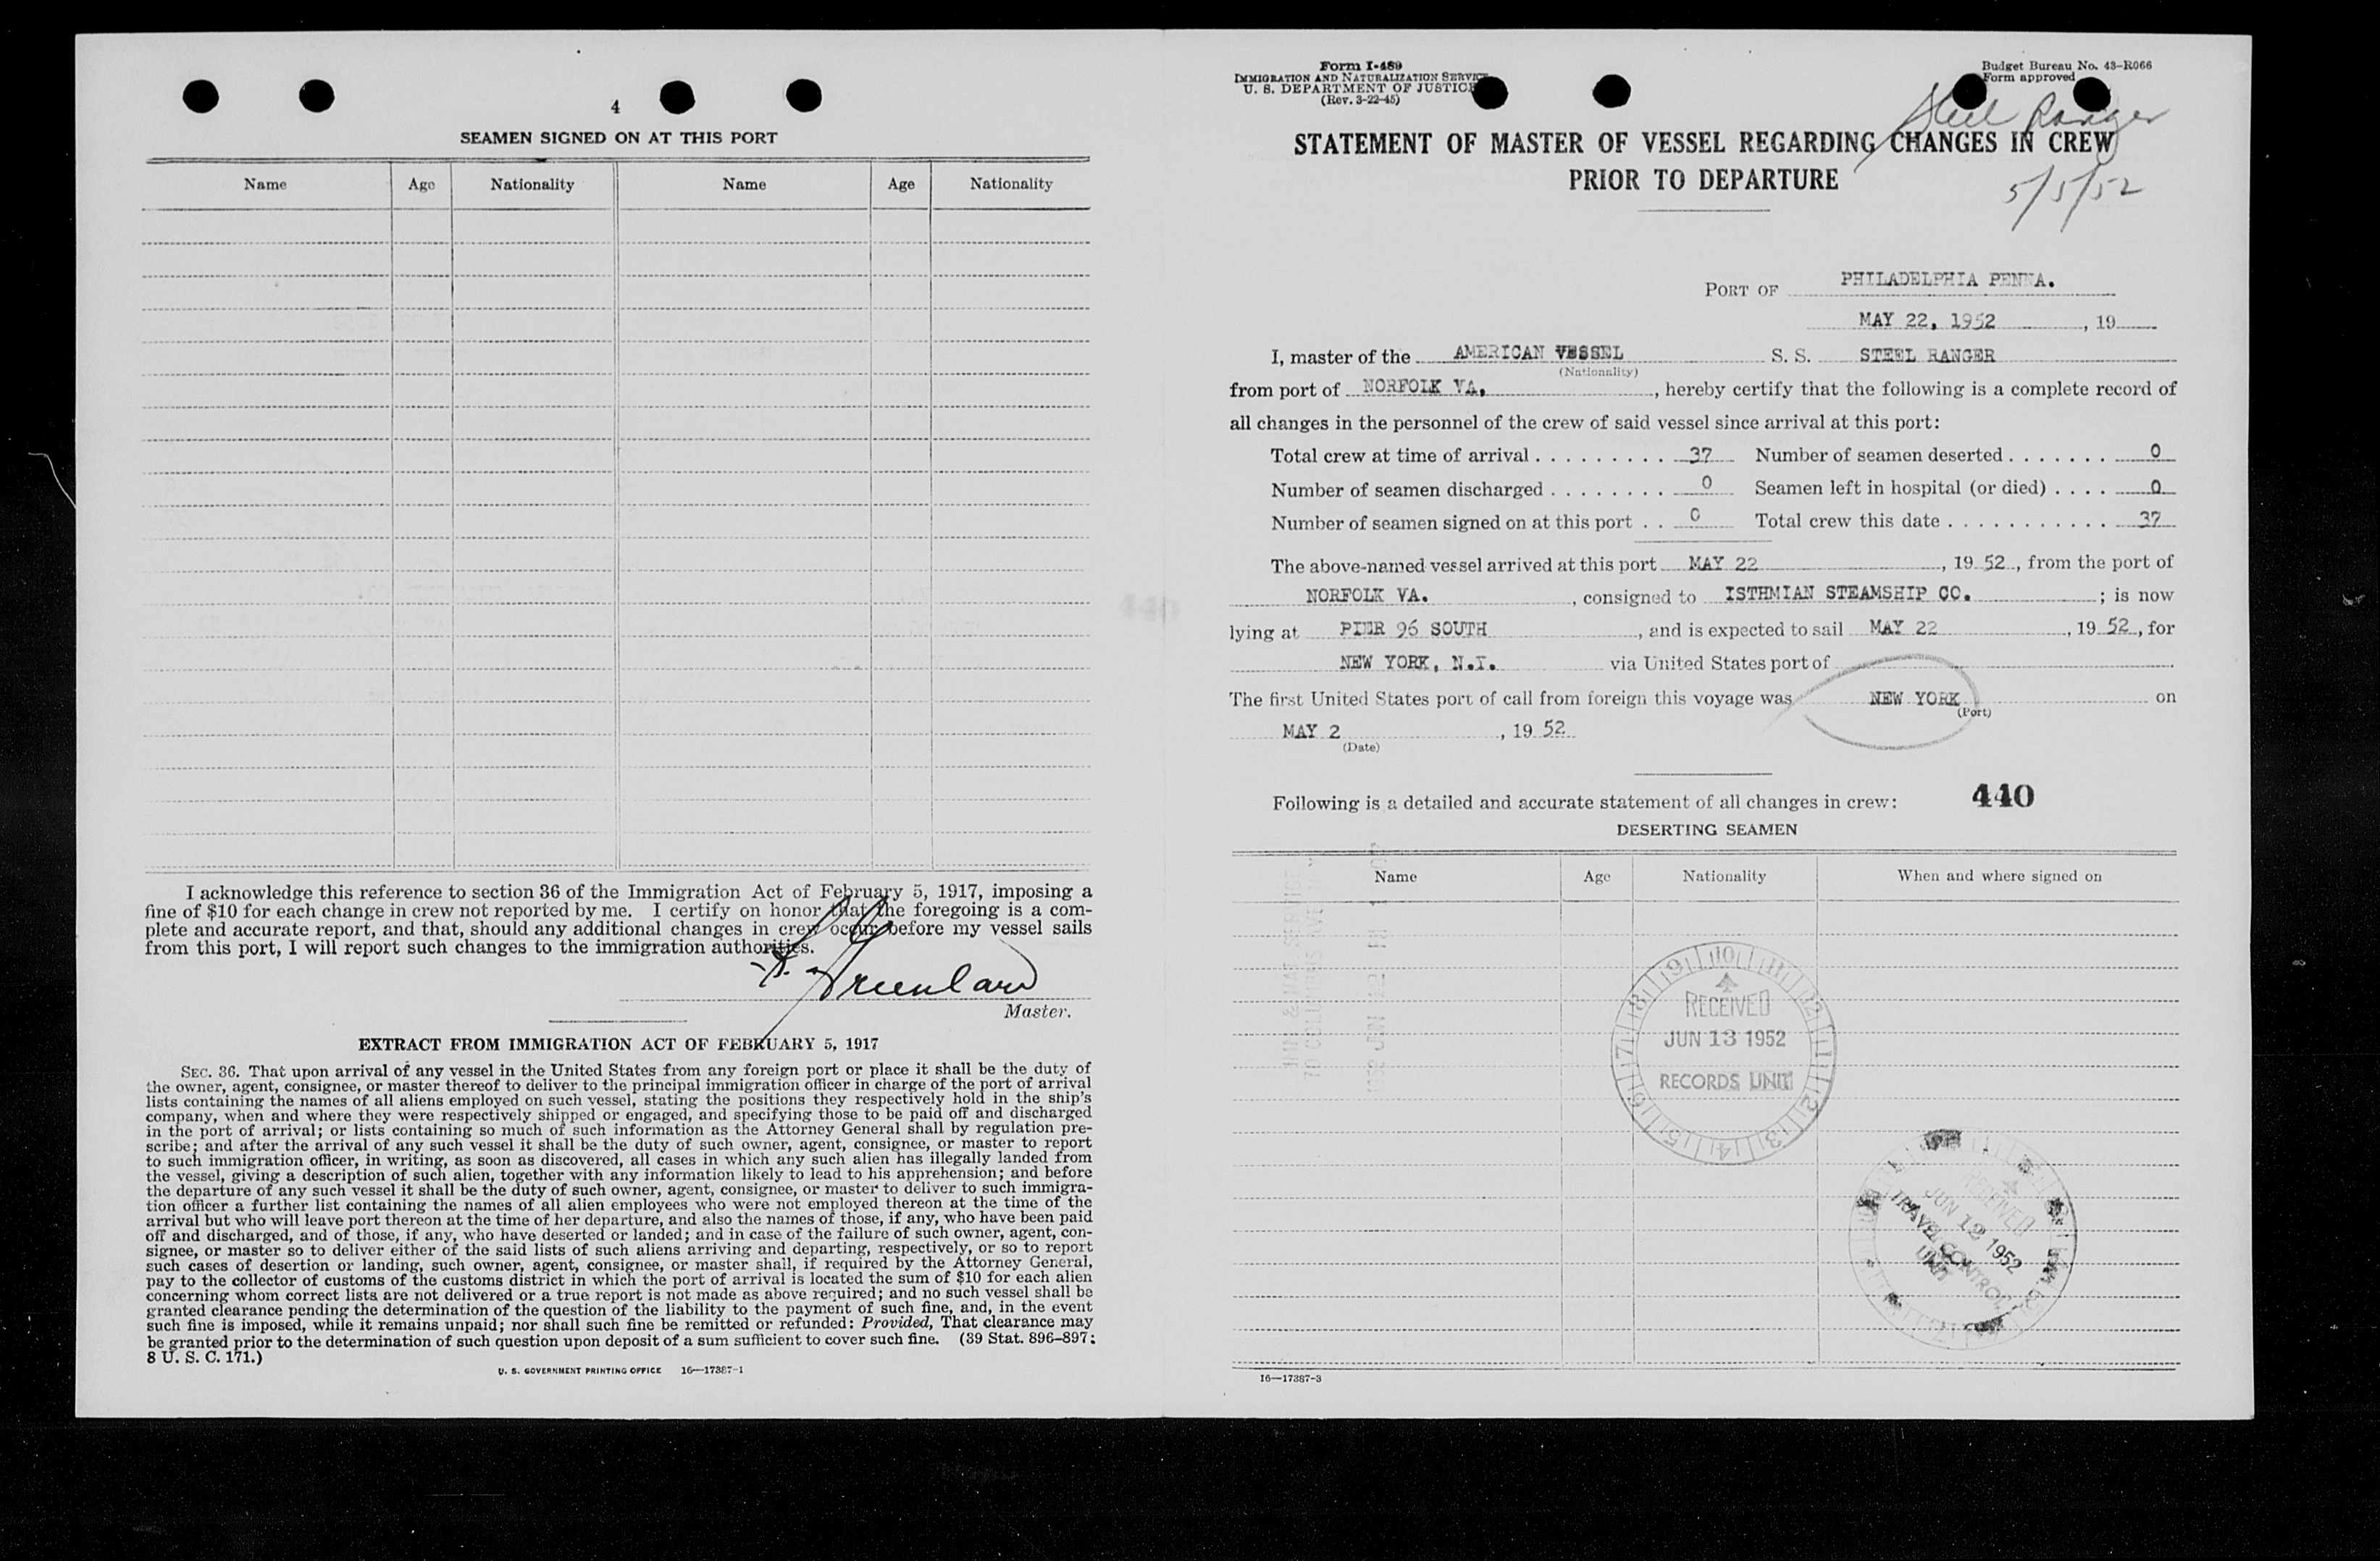 4
SEAMEN SIGNED ON AT THIS PORT
Name Age Nationality Name Age Nationality
I acknowledge this reference to section 36 of the Immigration Act of February 5, 1917, imposing a
fine of $10 for each change in crew not reported by me. I certify on honor that the foregoing is a com-
plete and accurate report, and that, should any additional changes in crew occur before my vessel sails
from this port, I will report such changes to the immigration authorities.
Master.
EXTRACT FROM IMMIGRATION ACT OF FEBRUARY 5, 1917
SEC. 36. That upon arrival of any vessel in the United States from any foreign port or place it shall be the duty of
the owner, agent, consignee, or master thereof to deliver to the principal immigration officer in charge of the port of arrival
lists containing the names of all aliens employed on such vessel, stating the positions they respectively hold in the ship's
company, when and where they were respectively shipped or engaged, and specifying those to be paid off and discharged
in the port of arrival; or lists containing so much of such information as the Attorney General shall by regulation pre-
scribe; and after the arrival of any such vessel it shall be the duty of such owner, agent, consignee, or master to report
to such immigration officer, in writing, as soon as discovered, all cases in which any such alien has illegally landed from
the vessel, giving a description of such alien, together with any information likely to lead to his apprehension; and before
the departure of any such vessel it shall be the duty of such owner, agent, consignee, or master to deliver to such immigra-
tion officer a further list containing the names of all alien employees who were not employed thereon at the time of the
arrival but who will leave port thereon at the time of her departure, and also the names of those, if any, who have been paid
off and discharged, and of those, if any, who have deserted or landed; and in case of the failure of such owner, agent, con-
signee, or master so to deliver either of the said lists of such aliens arriving and departing, respectively, or so to report
such cases of desertion or landing, such owner, agent, consignee, or master shall, if required by the Attorney General,
pay to the collector of customs of the customs district in which the port of arrival is located the sum of $10 for each alien
concerning whom correct lists are not delivered or a true report is not made as above required; and no such vessel shall be
granted clearance pending the determination of the question of the liability to the payment of such fine, and, in the event
such fine is imposed, while it remains unpaid; nor shall such fine be remitted or refunded: Provided, That clearance may
be granted prior to the determination of such question upon deposit of a sum sufficient to cover such fine. (39 Stat. 896–897;
8 U. S. C. 171.)
U. S. GOVERNMENT PRINTING OFFICE 16—17387-1
Form I-489
IMMIGRATION AND NATURALIZATION SERVICE
U. S. DEPARTMENT OF JUSTICE
(Rev. 3-22-45)
Budget Bureau No. 43–R066
Form approved
Steel Ranger
STATEMENT OF MASTER OF VESSEL REGARDING CHANGES IN CREW
PRIOR TO DEPARTURE
5/5/52
PORT OF PHILADELPHIA PENNA.
MAY 22, 1952, 19
I, master of the AMERICAN VESSEL S. S. STEEL RANGER
(Nationality)
from port of NORFOLK VA., hereby certify that the following is a complete record of
all changes in the personnel of the crew of said vessel since arrival at this port:
Total crew at time of arrival 37 Number of seamen deserted 0
Number of seamen discharged 0 Seamen left in hospital (or died) 0
Number of seamen signed on at this port 0 Total crew this date 37
The above-named vessel arrived at this port MAY 22, 19 52, from the port of
NORFOLK VA., consigned to ISTHMIAN STEAMSHIP CO.; is now
lying at PIER 96 SOUTH, and is expected to sail MAY 22, 19 52, for
NEW YORK, N.Y. via United States port of
The first United States port of call from foreign this voyage was NEW YORK on
(Port)
MAY 2, 19 52
(Date)
Following is a detailed and accurate statement of all changes in crew: 440
DESERTING SEAMEN
Name Age Nationality When and where signed on
RECEIVED
JUN 13 1952
RECORDS UNIT
RECEIVED
JUN 12 1952
TRAVEL CONTROL
UNIT
16—17387-3